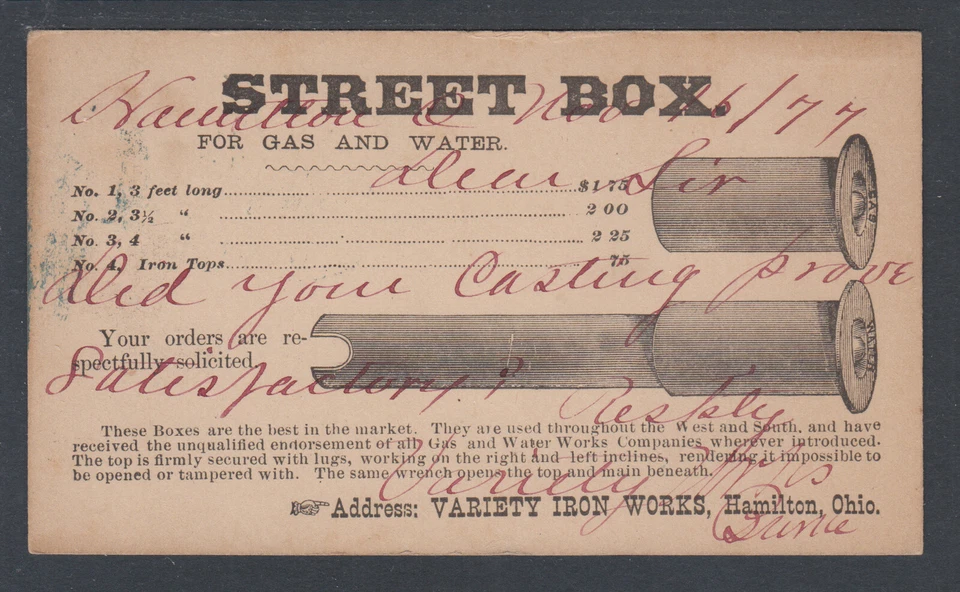 STREET BOX.
Hamilton O Nov 16/77
FOR GAS AND WATER.
Dear Sir
No. 1, 3 feet long $1 75
No. 2, 3½ " 2 00
No. 3, 4 " 2 25
No. 4, Iron Tops 75
GAS
Did your Casting prove
Your orders are re-
spectfully solicited.
WATER
Satisfactory?
Respkly
These Boxes are the best in the market. They are used throughout the West and South, and have
received the unqualified endorsement of all Gas and Water Works Companies wherever introduced.
The top is firmly secured with lugs, working on the right and left inclines, rendering it impossible to
be opened or tampered with. The same wrench opens the top and main beneath.
Variety
Address: VARIETY IRON WORKS, Hamilton, Ohio.